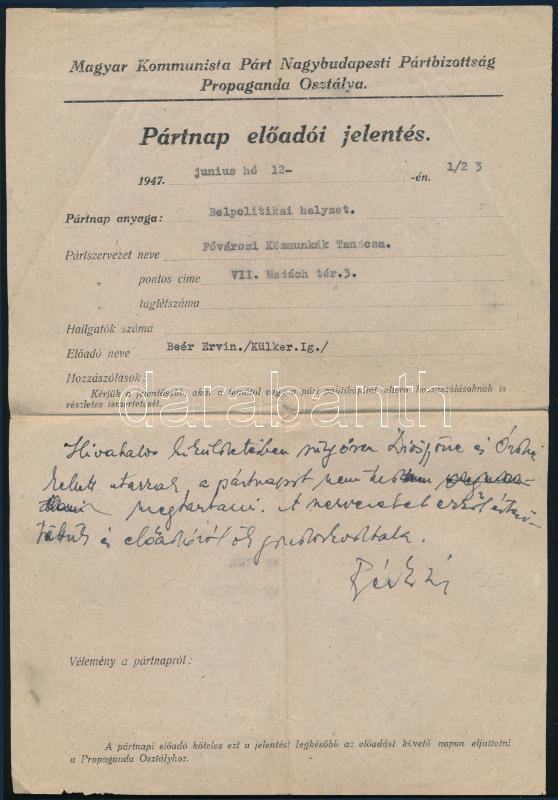 Magyar Kommunista Párt Nagybudapesti Pártbizottság
Propaganda Osztálya.
Pártnap előadói jelentés.
1947. junius hó 12- -én. 1/2 3
Pártnap anyaga: Belpolitikai helyzet.
Pártszervezet neve Fővárosi Közmunkák Tanácsa.
„ pontos cime VII. Madách tér.3.
„ taglétszáma
Hallgatók száma
Előadó neve Beér Ervin./Külker.Ig./
Hozzászólások:
Kérjük a jelentősebb, akár a témától vagy a párt politikájától eltérő hozzászólásoknak is
részletes ismertetését.
darabanth
Hivatalos kiküldetésben
kellett utaznom, a pártnapot nem
megtartani. A szervezetet erről
és előadóról ők gondoskodtak.
Vélemény a pártnapról:
A pártnapi előadó köteles ezt a jelentést legkésőbb az előadást követő napon eljuttatni
a Propaganda Osztályhoz.